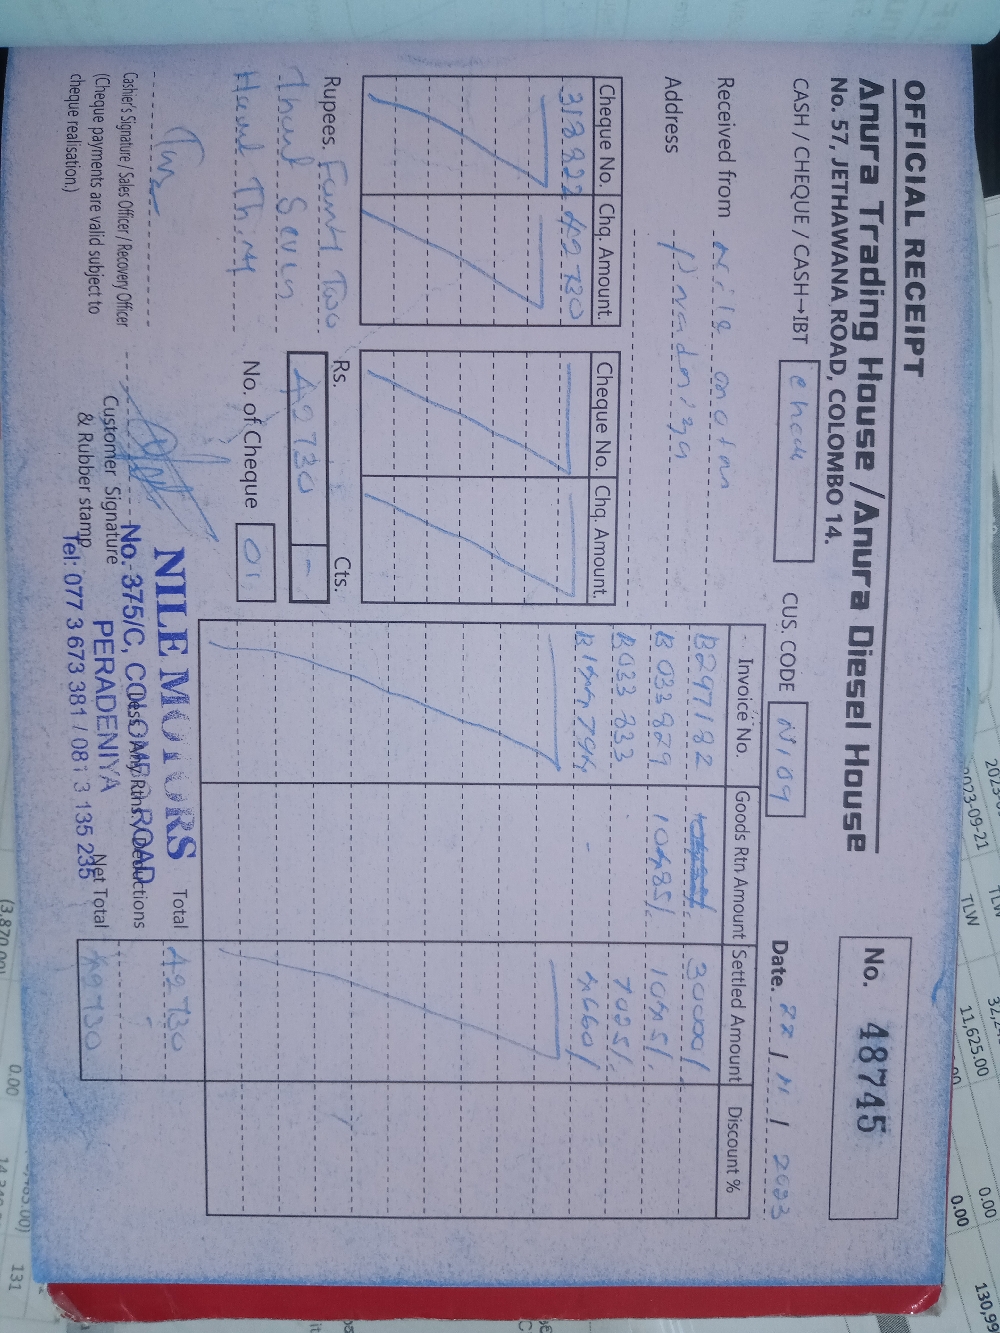 OFFICIAL RECEIPT
Anura Trading House / Anura Diesel House
No. 57, JETHAWANA ROAD, COLOMBO 14.
No. 48745
CASH / CHEQUE / CASH→IBT
CUS. CODE N109
Date. 22 / 11 / 2023
Received from
Address
Cheque No. Chq. Amount.
313822 42730
Cheque No. Chq. Amount.
Invoice No. Goods Rtn Amount Settled Amount Discount %
B297182 30000/
B033829 10485/.
B033833 7025/.
- 4660/
Rupees. Fourty Two
Thousand Seven
Thirty
Rs. Cts.
42730 -
No. of Cheque 01
Total 42730
Less: Any Rtns / Deductions
Net Total 42730
Cashier's Signature / Sales Officer / Recovery Officer
(Cheque payments are valid subject to
cheque realisation.)
Customer Signature
& Rubber stamp
NILE MOTORS
No. 375/C, COLOMBO ROAD
PERADENIYA
Tel: 077 3 673 381 / 081 3 135 235
2023-09-21
TLW
TLW
11,625.00
0.00
0.00
0.00
131